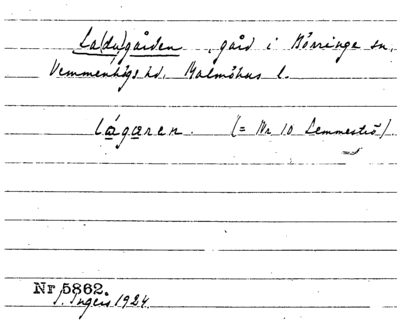 La(du)gården, gård i Börringe sn,
Vemmenhögs hd. Malmöhus l.
lágæren. (= Nr 10 Lemmeströ)
Nr 5862.
J. Ingers 1924.